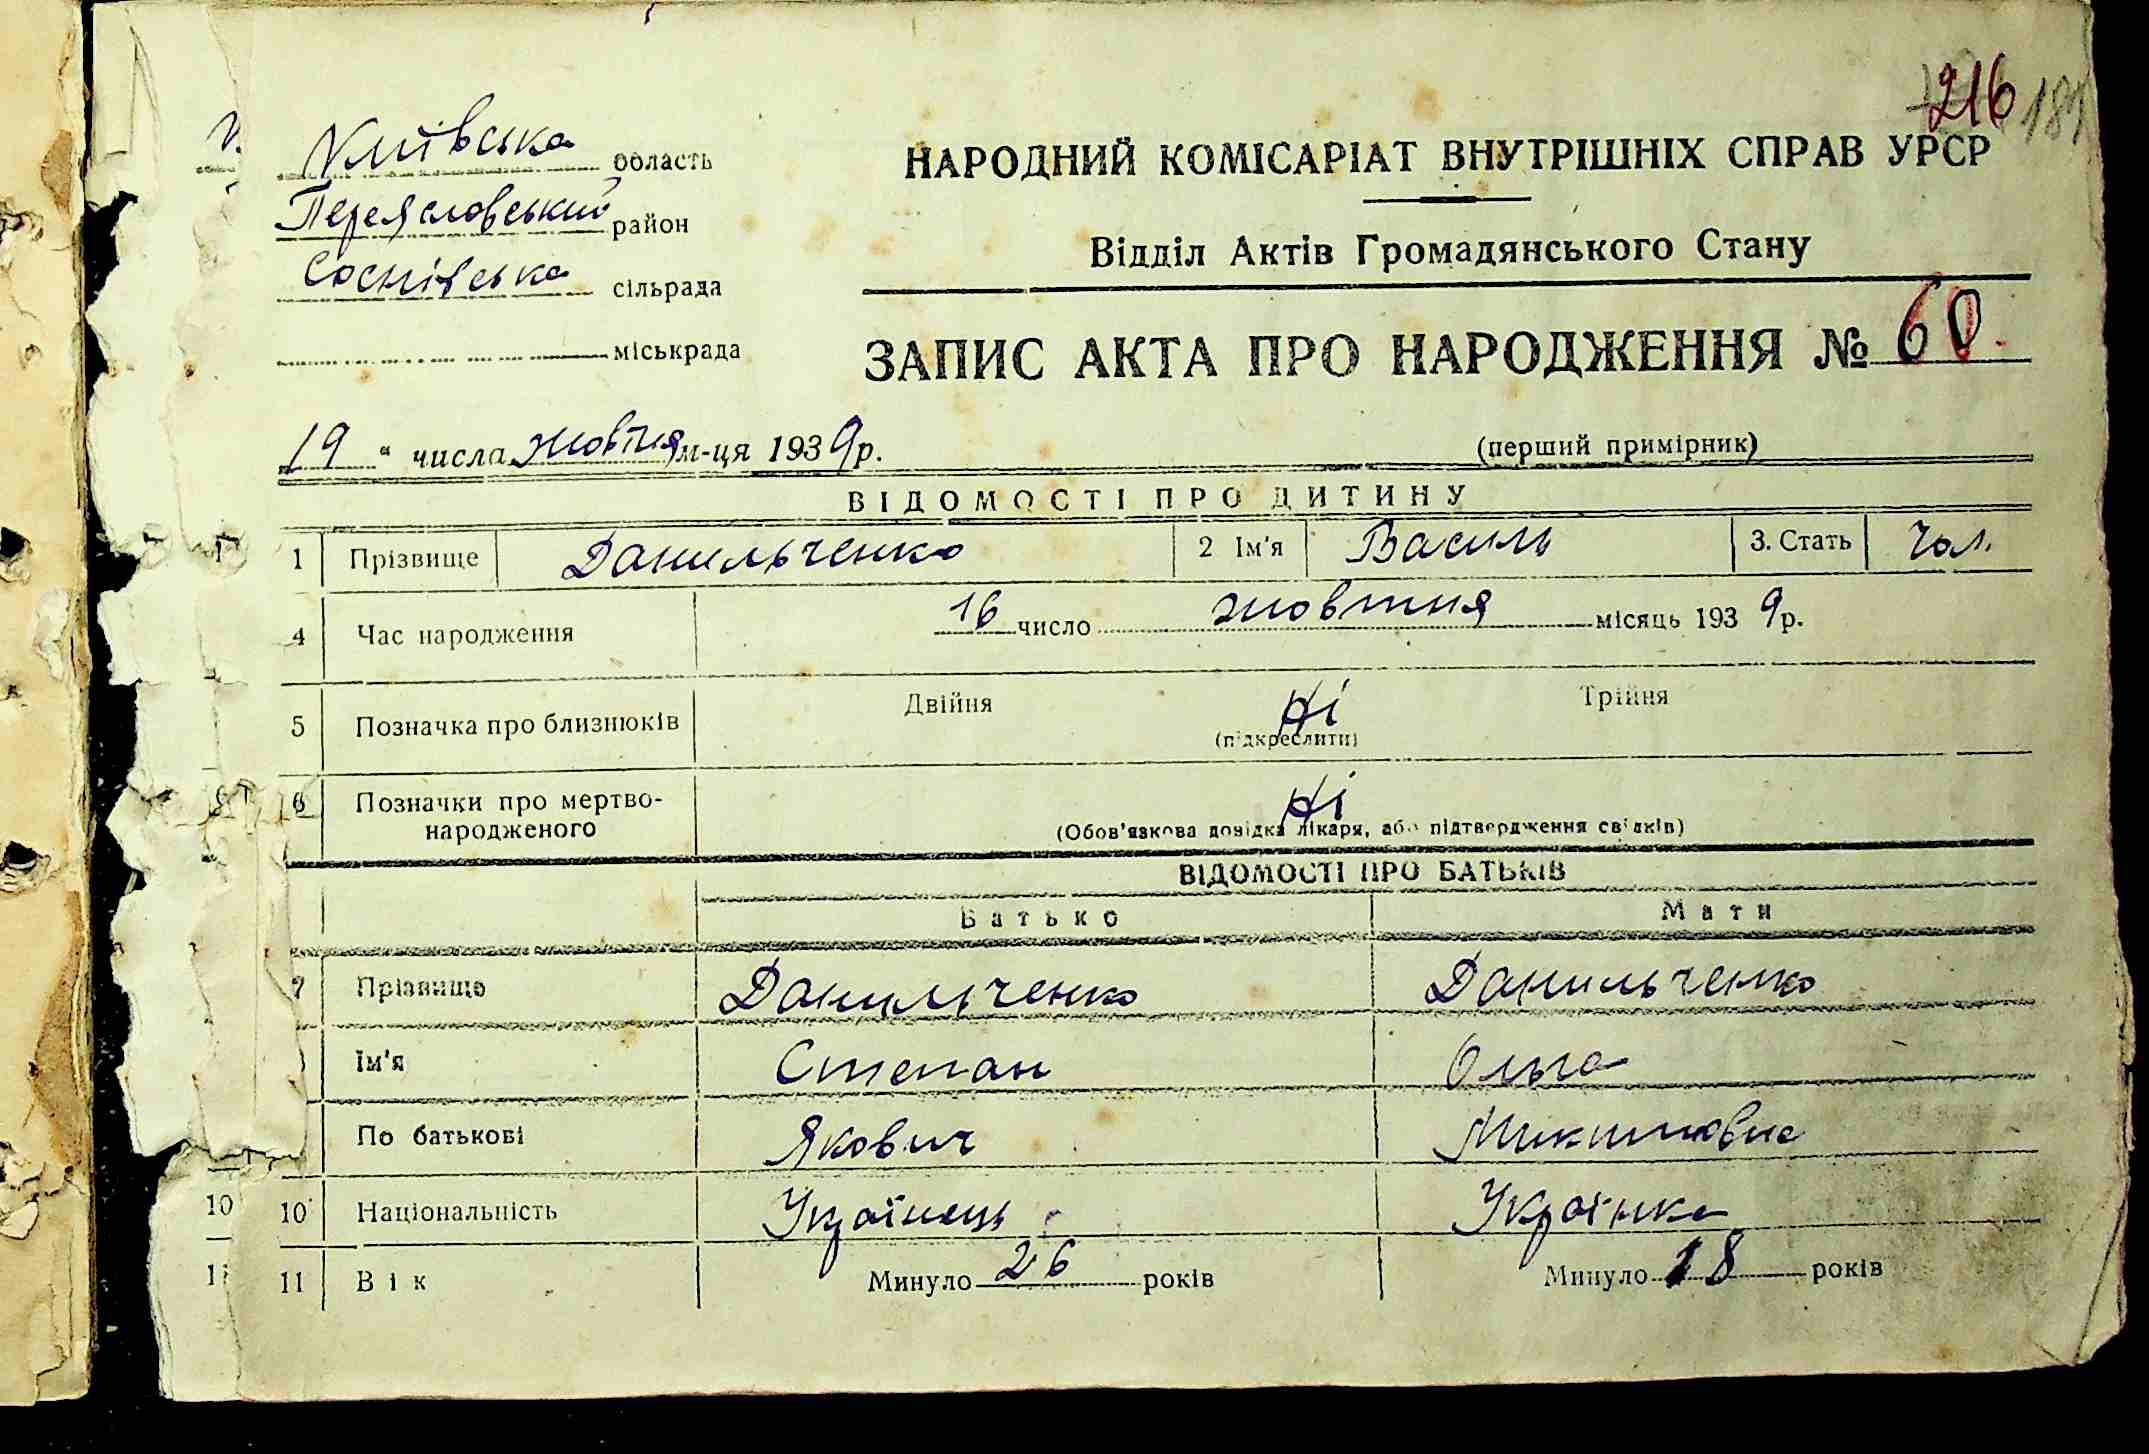 216
Київська область
Переяславський район
Соснівська сільрада
міськрада
НАРОДНИЙ КОМІСАРІАТ ВНУТРІШНІХ СПРАВ УРСР
Відділ Актів Громадянського Стану
ЗАПИС АКТА ПРО НАРОДЖЕННЯ № 60
19 " числа жовтня м-ця 1939 р.
(перший примірник)
ВІДОМОСТІ ПРО ДИТИНУ
1 Прізвище Данильченко 2 Ім'я Василь 3. Стать Чол.
4 Час народження 16 число жовтня місяць 1939 р.
5 Позначка про близнюків Двійня Ні Трійня
(підкреслити)
6 Позначки про мертво-
народженого Ні
(Обов'язкова довідка лікаря, або підтвердження свідків)
ВІДОМОСТІ ПРО БАТЬКІВ
Батько Мати
7 Прізвище Данильченко Данильченко
Ім'я Степан Ольга
По батькові Якович
10 10 Національність Українець Українка
11 11 Вік Минуло 26 років Минуло 18 років